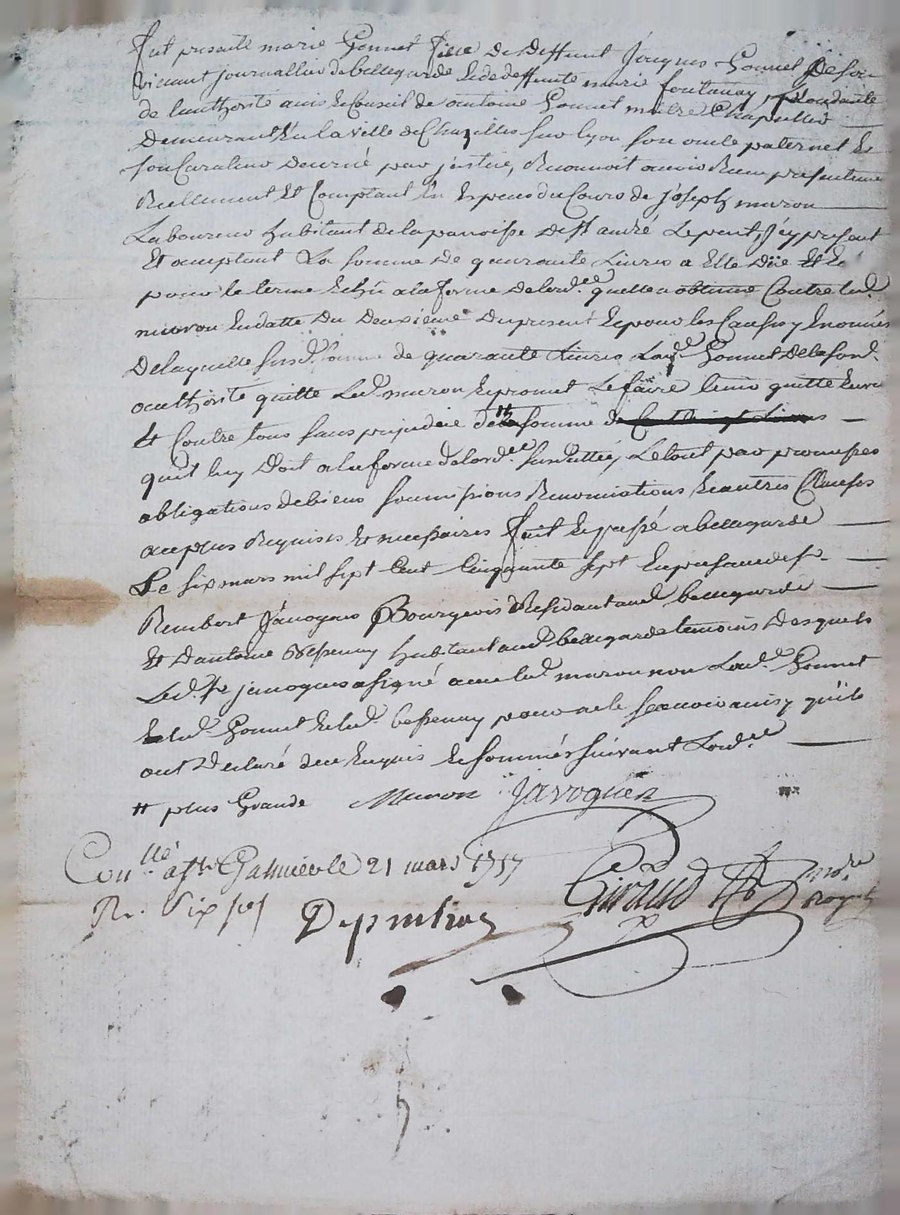 fut presante marie Gonnet fille de deffunt Jacques Gonnet de son
vivant journallier de bellegarde et de deffunte marie fontanay, procedante
de l'authorité avis et Conseil de antoine Gonnet maitre Chapellier
Demeurant en la ville de Chazelles sur lyon son oncle paternel et
son Curateur decerné par justice, Reconnoit avoir Reçu presentement
Reellement et Comptant en Especes du Cours de joseph muron
Laboureur habitant de la paroisse de St andré Le puit, icy present
Et acceptant La somme de quarante Livres a Elle düe et
pour le terme Echû a la forme de lord.ce quelle a obtenue Contre led.
muron En datte du deuxieme du present Et pour les Causes y Enoncées
De laquelle susd. somme de quarante Livres Lad. Gonnet de lasusd.
authorité quitte Led. muron Et promet Le faire tenir quitte Envers
Et Contre tous sans prejudice de # somme de
quil luy Doit a la forme de lord.ce susdattée, Le tout par promesses
obligations de biens soumissions Renonciations Et autres Clauses
au plus Requises et necessaires fait Et passé a bellegarde
Le six mars mil sept Cent Cinquante sept En presence de sr.
Rembert Javogues Bourgeois Residant aud. bellegarde
Et D'antoine Bessenay habitant aud. bellegarde temoins Desquels
Led. sr. javogues a signé avec led. muron non Lad. Gonnet
Et led. Gonnet Et led. bessenay pour ne le sçavoir ainsy qu'ils
ont Declaré de ce Enquis Et sommés suivant Lord.ce
# plus Grande Muron Javogues
Con.llé a st. Galmier le 21 mars 1757
R. six s.
Giraud no.re royal